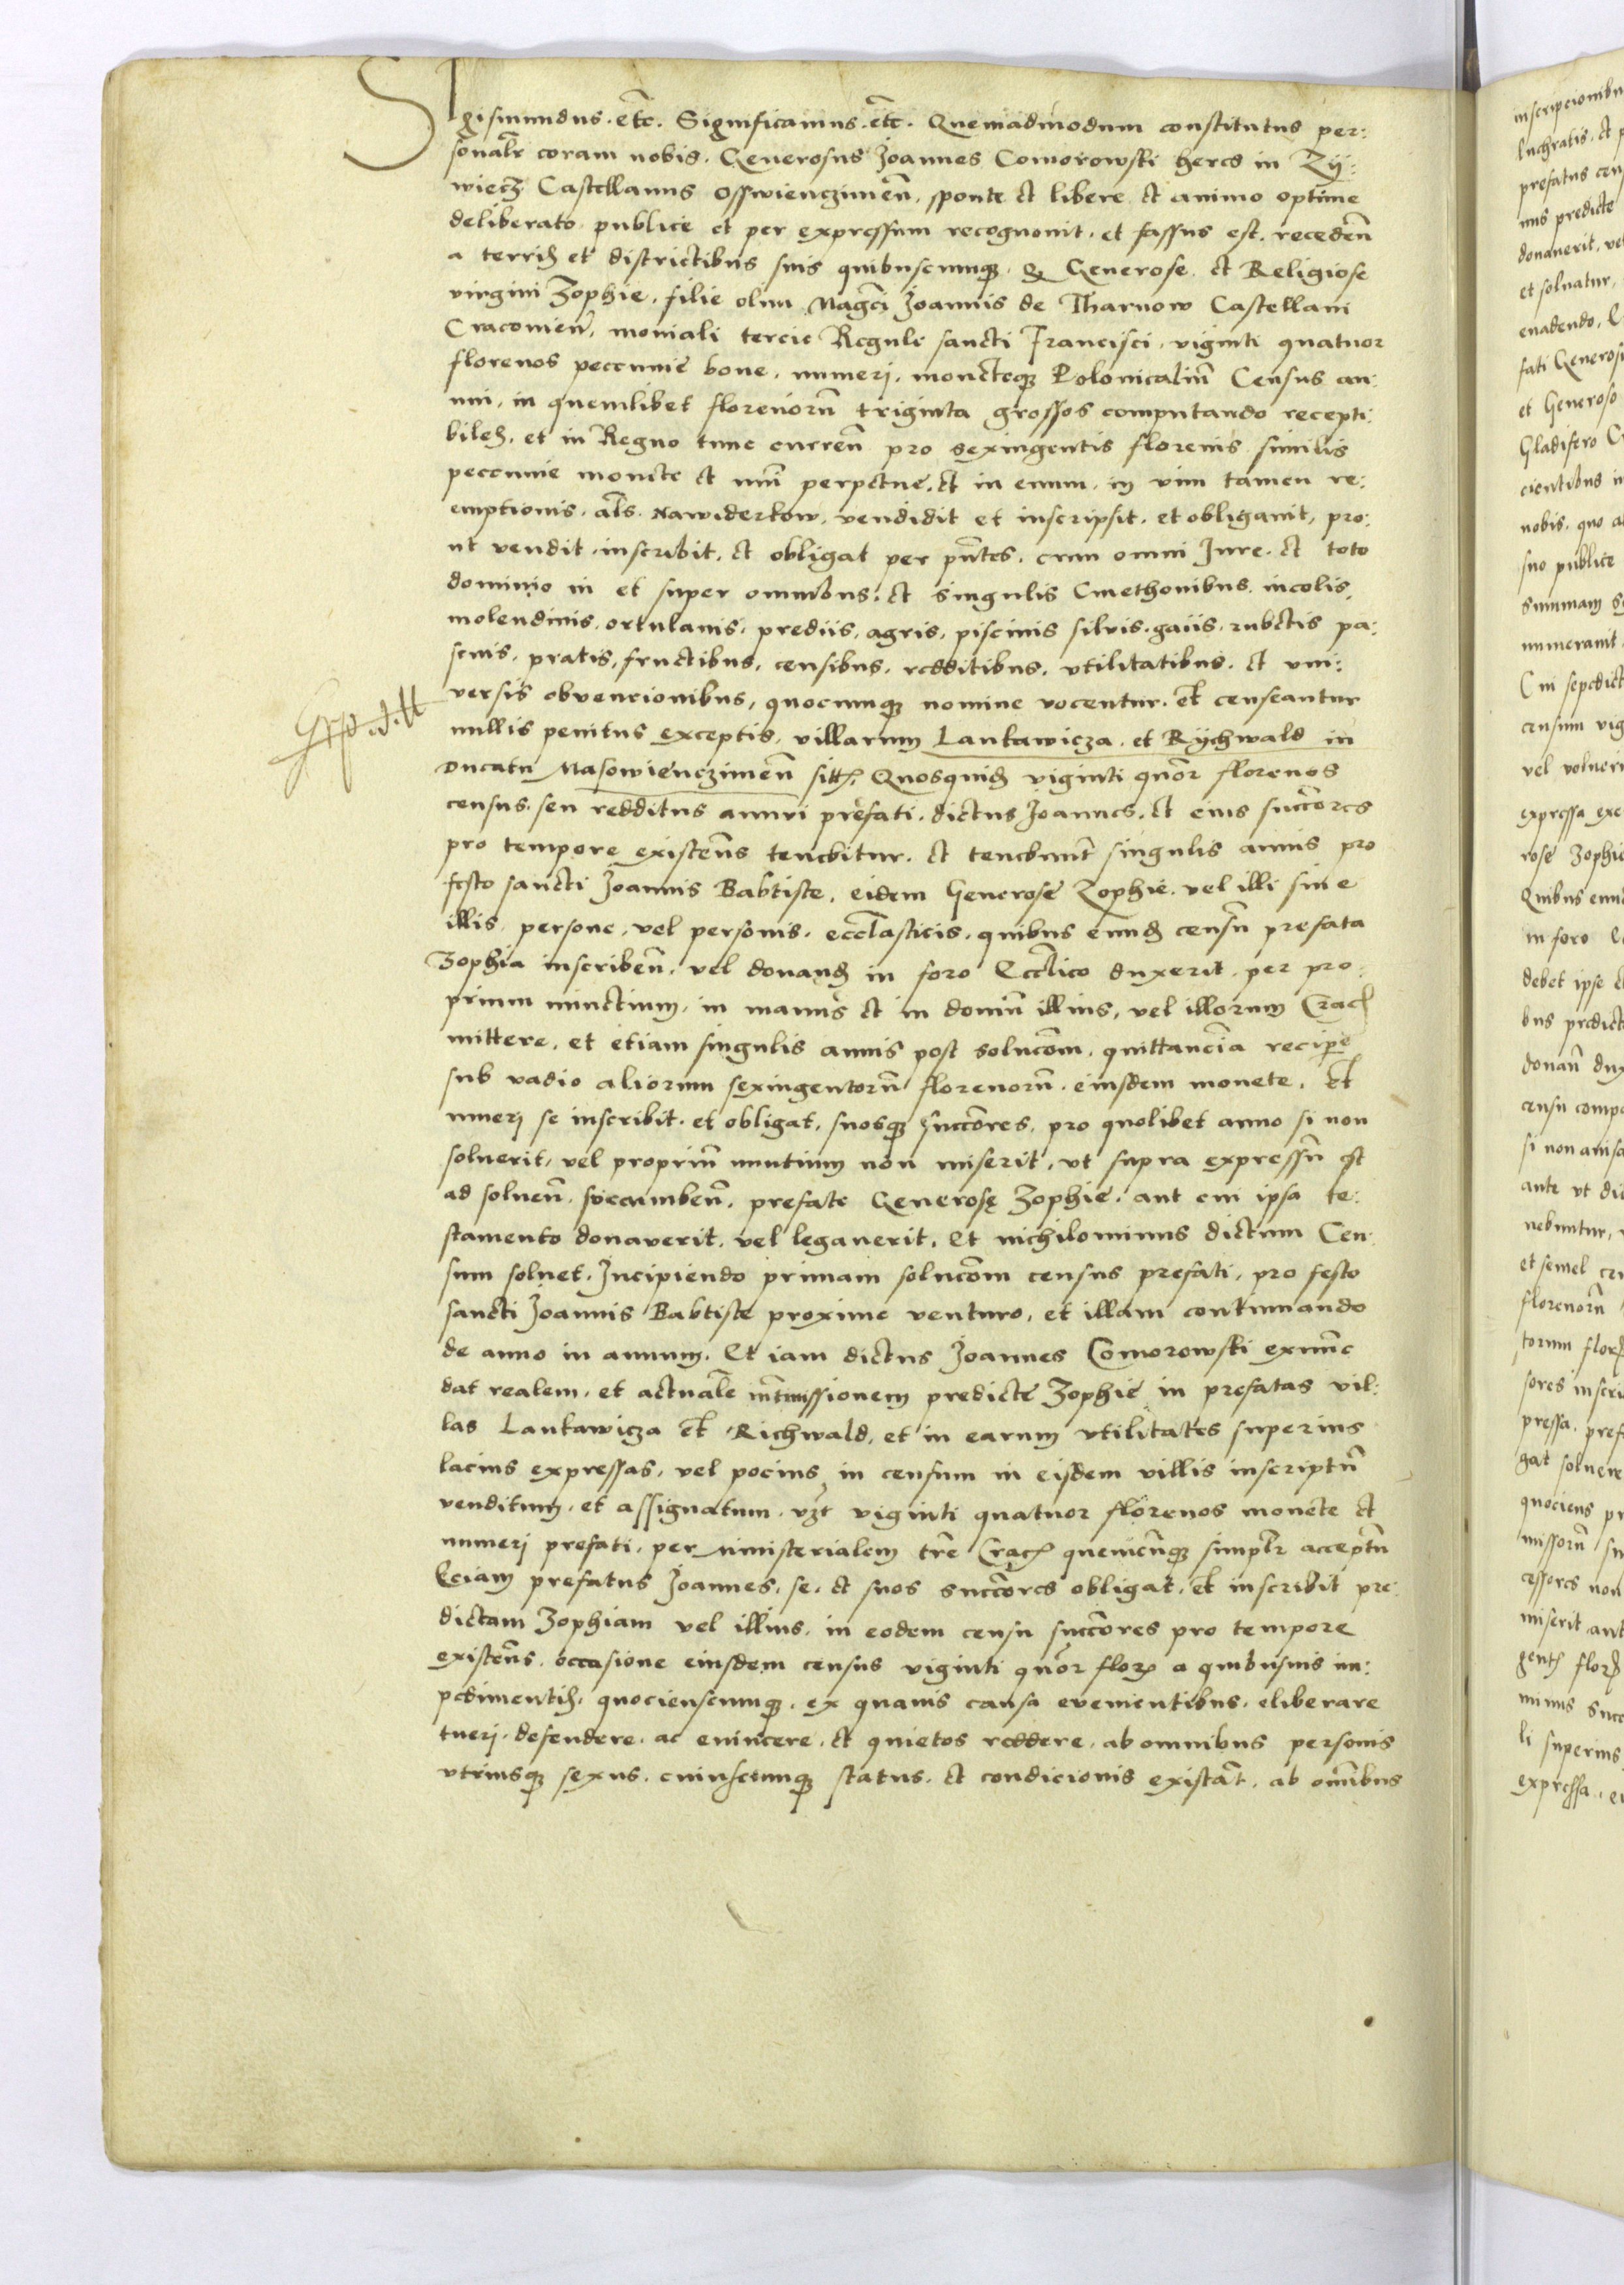 Sigismundus. etc. Significamus. etc. Quemadmodum constitutus per:
sonalr coram nobis. Generosus Joannes Comorowski heres in Zÿ:
wiecz Castellanus Osswienczimen̄, sponte et libere et animo optime
deliberato publice et per expressum recognouit. et fassus est. receden̄
a terris et districtibus suis quibuscumqꝫ. Qꝫ Generose et Religiose
virgini Zophie, filie olim Magc̄i Joannis de Tharnow Castellani
Cracouien̄, moniali tercie Regule sancti Francisci, viginti quatuor
florenos peccunie bone, numerj, moneteqꝫ Polonicaliū Census an:
nui, in quemlibet florenorū triginta grossos computando recepti:
biles, et in Regno tunc curren̄ pro sexingentis florenis similis
peccunie monete et nūi perpetue, et in euum, in vim tamen re:
emptionis. al̄s. Nawiderkow. vendidit et inscripsit, et obligauit, pro:
ut vendit, inscribit, et obligat per pn̄tes, cum omni Jure. et toto
dominio in et super omnibus, et singulis Cmethonibus, incolis,
molendinis, ortulanis, prediis, agris, piscinis siluis, gaiis, rubetis pa:
scuis, pratis, fructibus, censibus, redditibus, vtilitatibus, et vni:
versis obvencionibus, quocumqꝫ nomine vocentur. et censeantur
nullis penitus exceptis, villarum Lankawicza, et Rÿchwald in
Ducatu Nasowienczimen̄ sitis, Quosquidꝫ viginti quor florenos
census seu redditus annui prefati, dictus Joannes, et eius succ̄ores
pro tempore existen̄s tenebitur, et tenebunt singulis annis pro
festo sancti Joannis Babtiste, eidem Generose Zophie, vel illi siue
illis, persone, vel personis, eccl̄asticis, quibus eundꝫ censū prefata
Zophia inscriben̄, vel donandꝫ in foro Eccl̄ico duxerit, per pro:
prium nunctium, in manus et in domū illius, vel illorum Crac
mittere, et etiam singulis annis post soluc̄om, quittanciā recipere
sub vadio aliorum sexingentorū florenorū, eiusdem monete, et
numerj se inscribit, et obligat, suosqꝫ succ̄ores, pro quolibet anno si non
soluerit, vel propriū nuntium non miserit, vt supra expressū est
ad soluen̄, succumben̄, prefate Generosę Zophie, aut cui ipsa te:
stamento donauerit, vel legauerit, Et nichilominus dictum Cen:
sum soluet, Incipiendo primam soluc̄om census prefati, pro festo
sancti Joannis Babtiste proxime venturo, et illam continuando
de anno in annum. Et iam dictus Joannes Comorowski exnunc
dat realem, et actualē intromissionem predicte Zophie in prefatas vil:
las Lankawicza et Richwald, et in earum vtilitates superius
lacius expressas, vel pocius in censum in eisdem villis inscriptū
venditum, et assignatum, vꝫt viginti quatuor florenos monete et
numerj prefati, per ministerialem tr̄e Crac quemcunqꝫ simplr acceptū
Eciam prefatus Joannes, se, et suos succ̄ores obligat, et inscribit pre:
dictam Zophiam vel illius, in eodem censu succ̄ores pro tempore
existen̄s, occasione eiusdem census viginti quor flor a quibusuis im:
pedimentis, quociescumqꝫ, ex quauis causa euenientibus, eliberare
tuerj, defendere, ac euincere, et quietos reddere, ab omnibus personis
vtriusqꝫ sexus, cuiuscumqꝫ status, et condicionis existāt, ab omībus